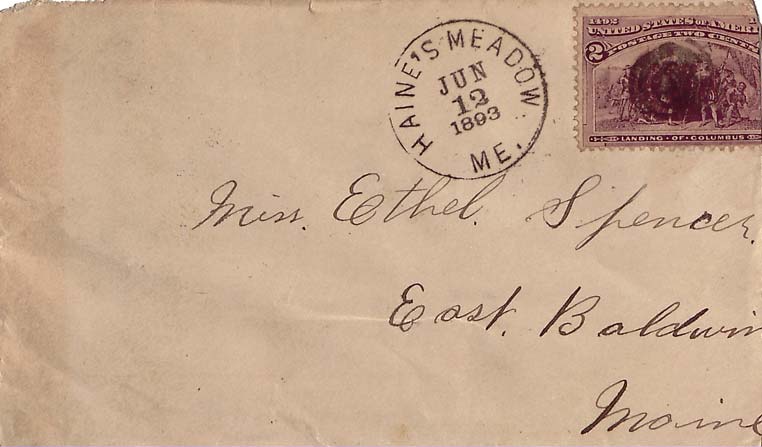 HAINE'S MEADOW
JUN
12
1893
ME.
1492
UNITED STATES OF AMERI
POSTAGE TWO CENTS
2
LANDING · OF · COLUMBUS
Miss. Ethel. Spencer.
East. Baldwin
Maine